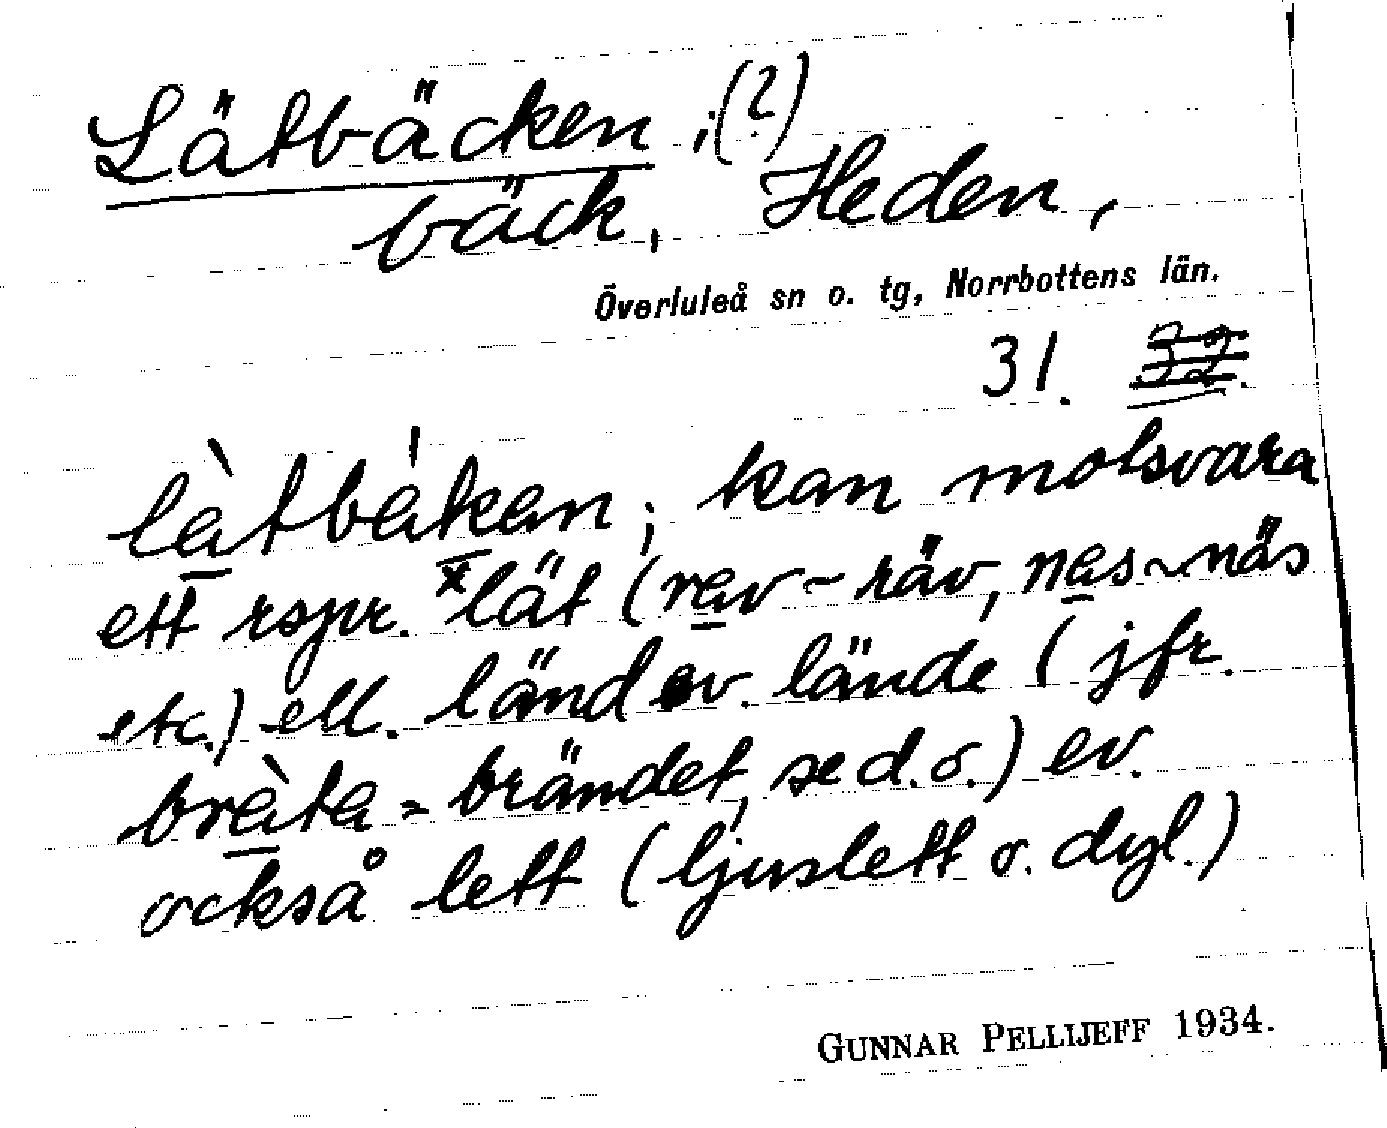 Lätbäcken, i(?)
bäck, Heden,
Överluleå sn o. tg, Norrbottens län.
31. 32.
là̱tbákan; kan motsvara
ett rspr. *lät (ra̱v ~ räv, na̱s ~ näs
etc.) ell. länd ev. lände (jfr.
brà̱ta = brändet, se d. o.) ev.
också lett (ljuslett o. dyl.)
GUNNAR PELLIJEFF 1934.